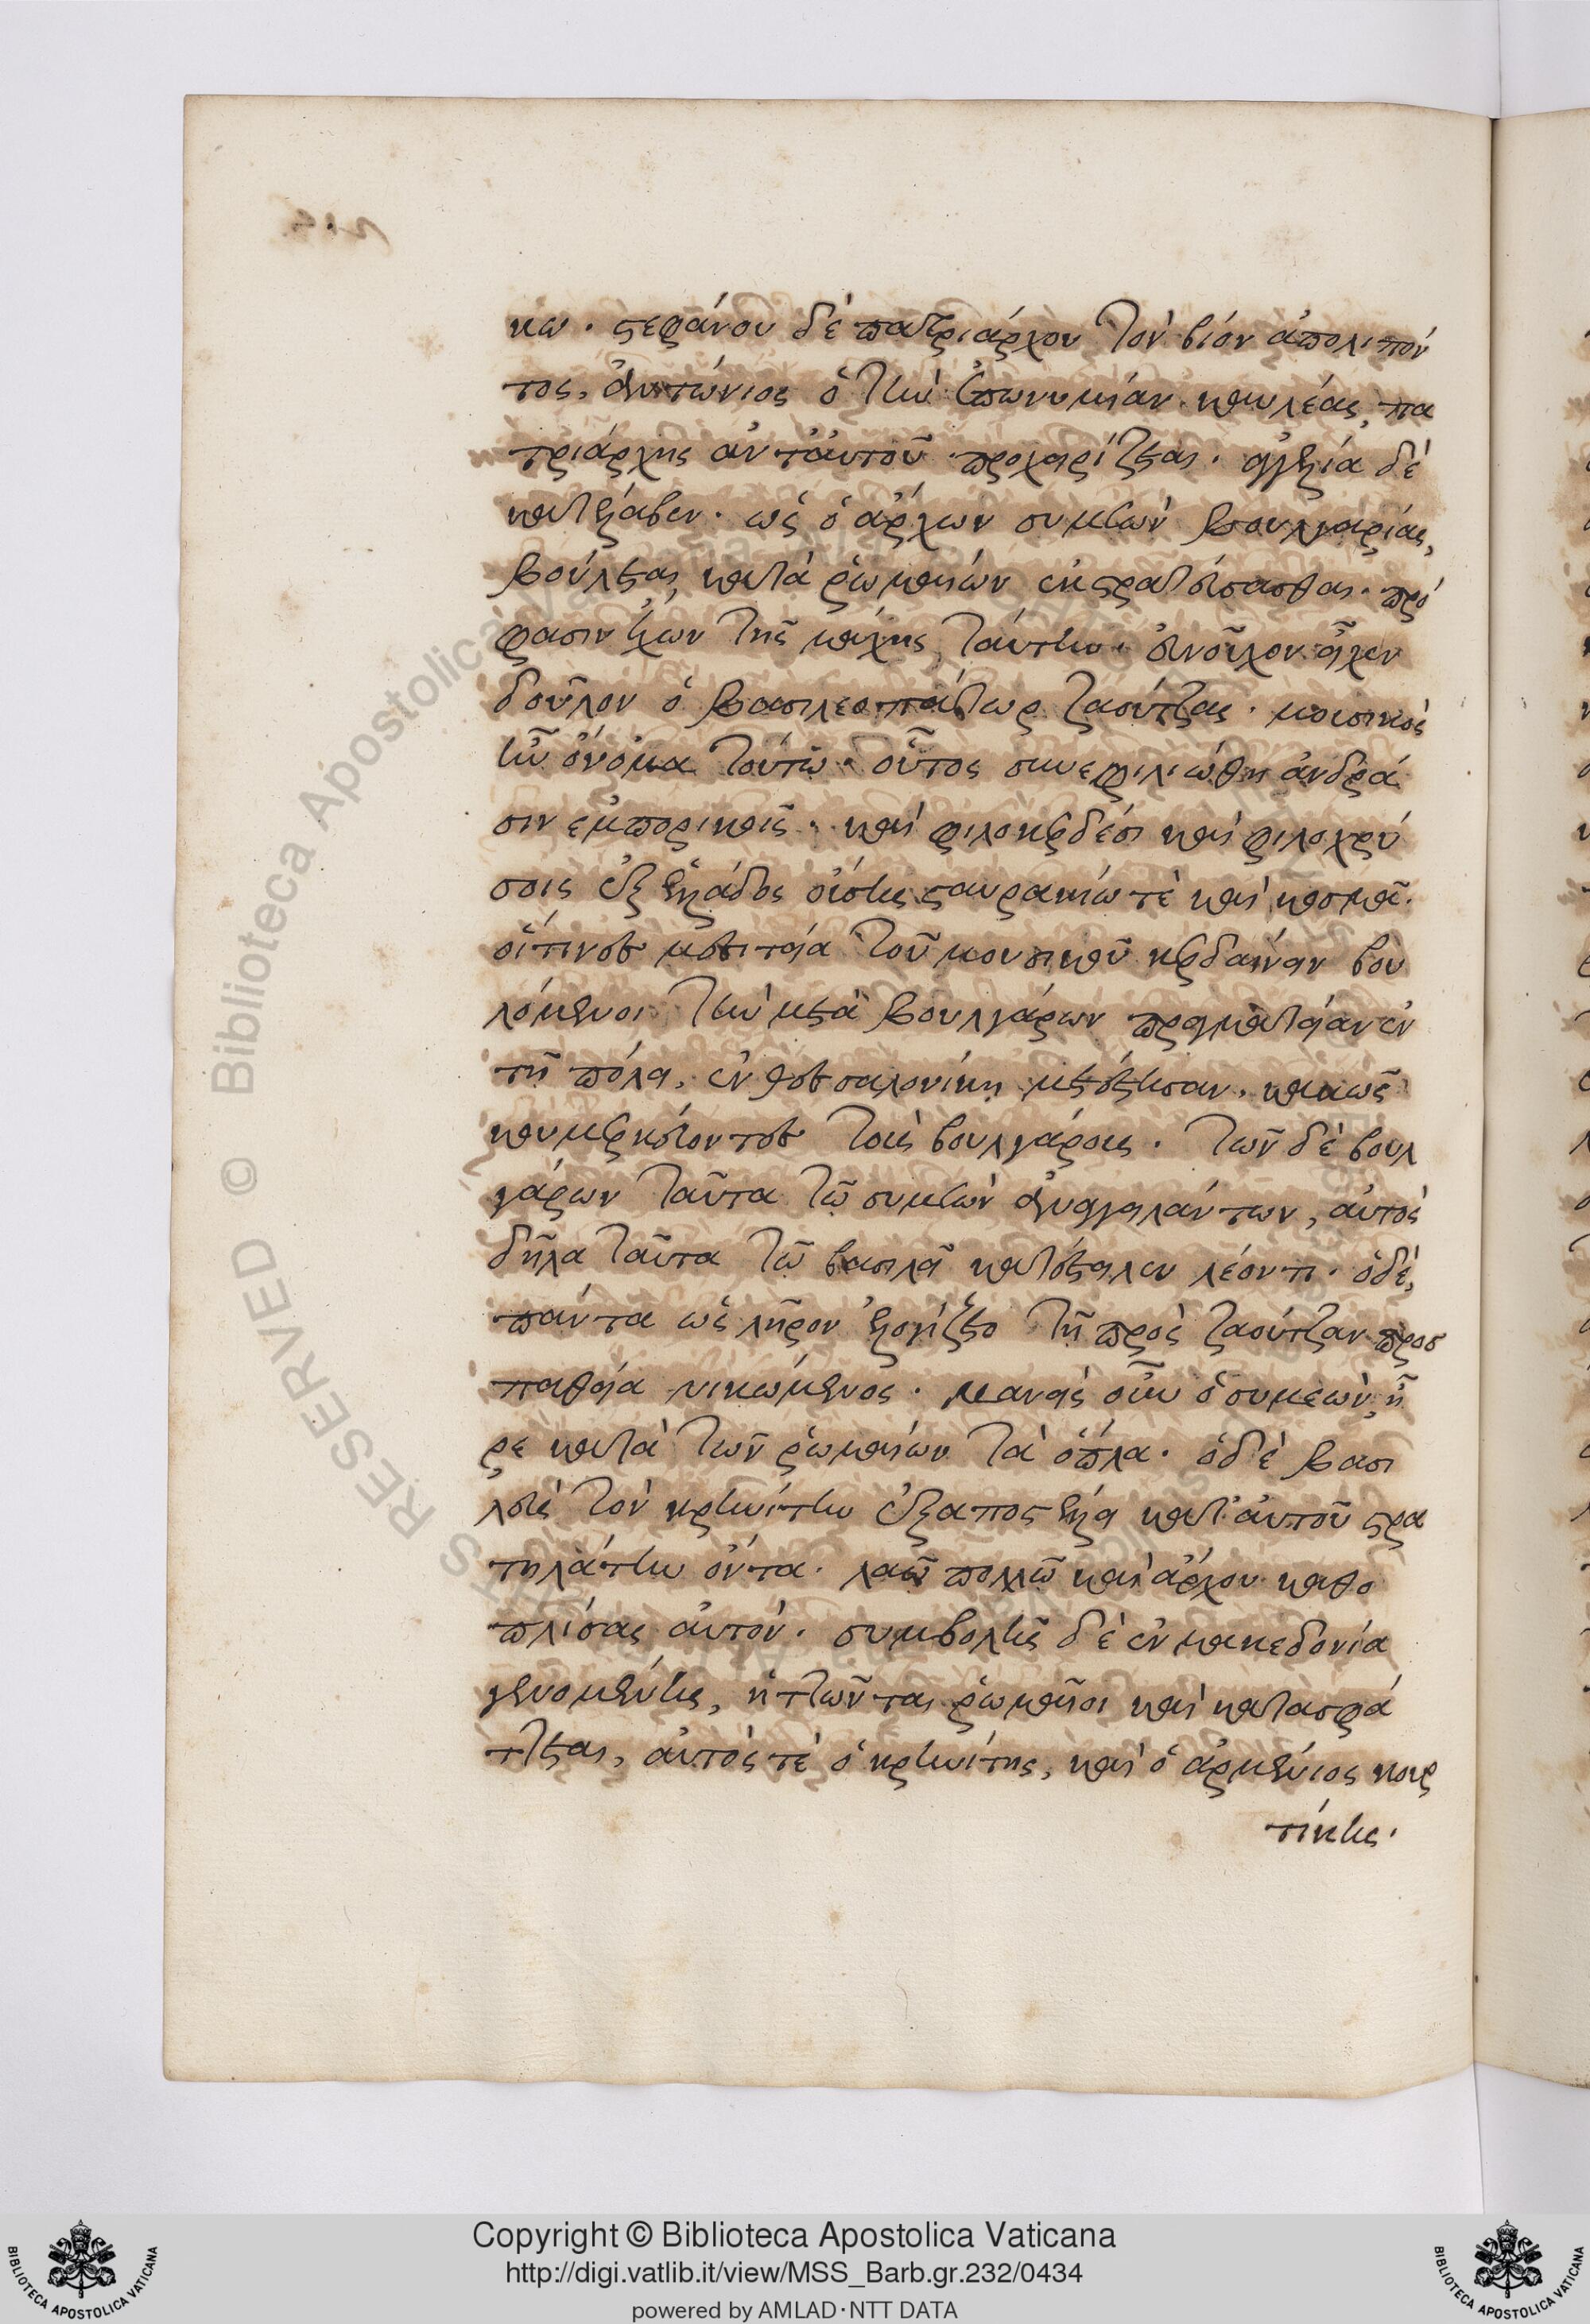 κω. στεφάνου δὲ πατριάρχου τὸν βίον ἀπολιπόν
τος, ἀντώνιος ὁ τὴν ἐπωνυμίαν καυλέας, πα
τριάρχης ἀντ' αὐτοῦ προχειρίζεται. ἀγγελία δὲ
κατέλαβεν. ὡς ὁ ἄρχων συμεὼν βουλγαρίας,
βούλεται, κατὰ ῥωμαίων ἐκστρατεύσασθαι. πρό
φασιν ἔχων τῆς μάχης ταύτην. εὐνοῦχον εἶχεν
δοῦλον ὁ βασιλεοπάτωρ ζαούτζας. μουσικὸς
ἦν ὄνομα τούτω. οὗτος συνεφιλιώθη ἀνδρά
σιν ἐμπορικοῖς. καὶ φιλοκερδέσι καὶ φιλοχρύ
σοις ἐξ ἑλλάδος οὖσι σταυρακίω τὲ καὶ κοσμᾶ.
οἵτινες μεσιτεία τοῦ μουσικοῦ κερδαίνειν βου
λόμενοι τὴν μετὰ βουλγάρων πραγματείαν ἐν
τῆ πόλει, ἐν θεσσαλονίκη μετέστησαν. κακῶς
κουμερκεύοντες τοὺς βουλγάρους. τῶν δὲ βουλ
γάρων ταῦτα τῶ συμεὼν ἀναγγειλάντων, αὐτὸς
δῆλα ταῦτα τῶ βασιλεῖ κατέστησεν λέοντι. ὁ δὲ,
πάντα ὡς λῆρον ἐλογίζετο τῆ πρὸς ζαούτζαν προσ
παθεία νικώμενος. μανεὶς οὖν ὁ συμεὼν, ἦ
ρε κατὰ τῶν ῥωμαίων τὰ ὅπλα. ὁ δὲ βασι
λεὺς τὸν κρηνίτην ἐξαποστέλλει κατ' αὐτοῦ στρα
τηλάτην ὄντα. λαῶ πολλῶ καὶ ἄρχου καθο
πλίσας αὐτόν. συμβολῆς δὲ ἐν μακεδονία
γενομένης, ἡττῶνται ῥωμαῖοι καὶ κατασφά
ττεται, αὐτός τὲ ὁ κρηνίτης, καὶ ὁ ἀρμένιος κουρ
τίκης.
Copyright © Biblioteca Apostolica Vaticana
http://digi.vatlib.it/view/MSS_Barb.gr.232/0434
powered by AMLAD·NTT DATA